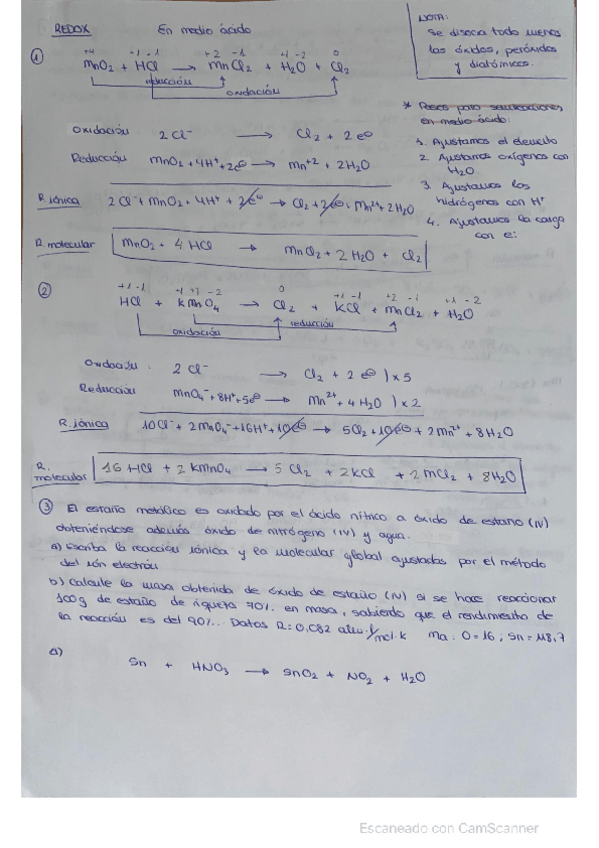 REDOX En medio ácido
NOTA:
Se disocia todo menos
los óxidos, peróxidos
y diatómicos.
① +4 +1 -1 +2 -1 +1 -2 0
MnO₂ + HCl → MnCl₂ + H₂O + Cl₂
reducción
oxidación
* Pasos para semirreacciones
en medio ácido:
1. Ajustamos el elemento
2. Ajustamos oxígenos con
H₂O
3. Ajustamos los
hidrógenos con H⁺
4. Ajustamos la carga
con e⁻
Oxidación 2 Cl⁻ → Cl₂ + 2 e⊖
Reducción MnO₂ + 4H⁺ + 2e⊖ → Mn⁺² + 2H₂O
R. iónica 2 Cl⁻ + MnO₂ + 4H⁺ + 2e⊖ → Cl₂ + 2e⊖ + Mn²⁺ + 2H₂O
R. molecular MnO₂ + 4 HCl → MnCl₂ + 2 H₂O + Cl₂
② +1 -1 +1 +7 -2 0 +1 -1 +2 -1 +1 -2
HCl + KMnO₄ → Cl₂ + KCl + MnCl₂ + H₂O
oxidación reducción
Oxidación: 2 Cl⁻ → Cl₂ + 2 e⊖ ) x 5
Reducción MnO₄⁻ + 8H⁺ + 5e⊖ → Mn²⁺ + 4 H₂O ) x 2
R. iónica 10Cl⁻ + 2 MnO₄⁻ + 16H⁺ + 10e⊖ → 5Cl₂ + 10e⊖ + 2 Mn²⁺ + 8 H₂O
R.
molecular 16 HCl + 2 KMnO₄ → 5 Cl₂ + 2 KCl + 2 MCl₂ + 8H₂O
③ El estaño metálico es oxidado por el ácido nítrico a óxido de estaño (IV)
obteniéndose además óxido de nitrógeno (IV) y agua.
a) Escriba la reacción iónica y la molecular global ajustadas por el método
del ión electrón
b) Calcule la masa obtenida de óxido de estaño (IV) si se hace reaccionar
100g de estaño de riqueza 70% en masa, sabiendo que el rendimiento de
la reacción es del 90%. Datos R=0,082 atm·l/mol·k Ma: O=16; Sn=118,7
a)
Sn + HNO₃ → SnO₂ + NO₂ + H₂O
Escaneado con CamScanner